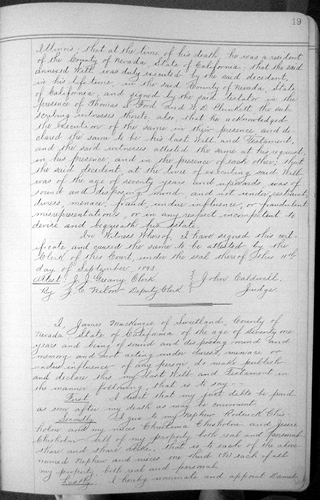 19
Illinois; that at the time of his death, he was a resident
of the County of Nevada State of California, that the said
annexed Will was duly executed by the said decedent,
in his life time, in the said County of Nevada, State
of California, and signed by the said testator in the
presence of Thomas S. Ford and the sub
scribing witnesses thereto, also that he acknowledged
the execution of the same in their presence and de
clared the same to be his last Will and Testament,
and the said witnesses attested the same at his request,
in his presence, and in the presence of each other; that
the said decedent at the time of executing said Will
was of the age of seventy years and upwards was of
sound and disposing mind and not under restraint,
duress, menace, fraud, undue influence, or fraudulent
misrepresentations, or in any respect incompetent to
devise and bequeath his estate.
In Witness Whereof, I have signed this cert
ificate and caused the same to be attested by the
Clerk of this Court, under the seal thereof this 11th
day of September
Attest J. J. Greany Clerk John Caldwell
By Deputy Clerk Judge
I, James MacKenzie of Smartland, County of
Nevada State of California of the age of seventy one
years and being of sound and disposing mind and
memory and not acting under duress, menace or
undue influence of any person do make publish
and declare this my last Will and Testament in
the manner following, that is to say—
First I direct that my just debts be paid
as soon after my death as may be convenient.
Secondly I give to my nephew Roderick Chis
holm and my nieces Christina Chisholm and Jessie
Chisholm all of my property both real and personal
share and share alike. That is to each of the above
named nephew and nieces one third of all
my property both real and personal.
Lastly I hereby nominate and appoint Daniel